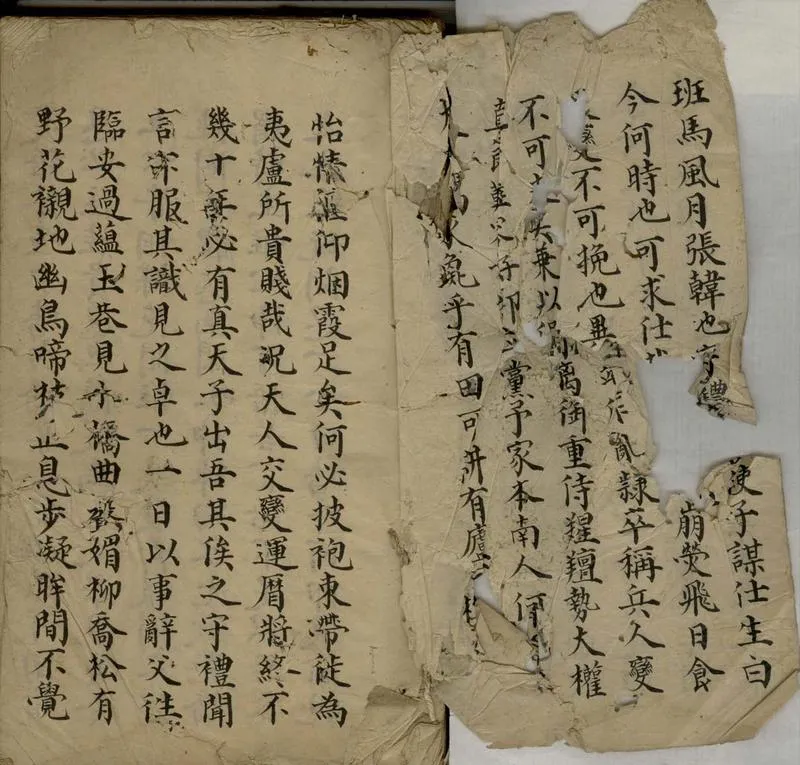 班馬風月張韓也守禮
使子謀仕生白
今何時也可求仕
崩熒飛日食
變不可挽也異
作亂隷卒稱兵人變
不可失兼以
離衙重侍羶勢大權
黨予家本南人何
人龜乎有田可耕有廬
怡情仰烟霞足矣何必披袍束帶徒為
夷虜所貴賤哉况天人交變運曆將終不
幾十年必有真天子出吾其俟之守禮聞
言窃服其識見之卓也一日以事辭父徃
臨安過蘊玉巷見小橋曲媚柳喬松有
野花襯地幽鳥啼枝止息步凝眸間不覺